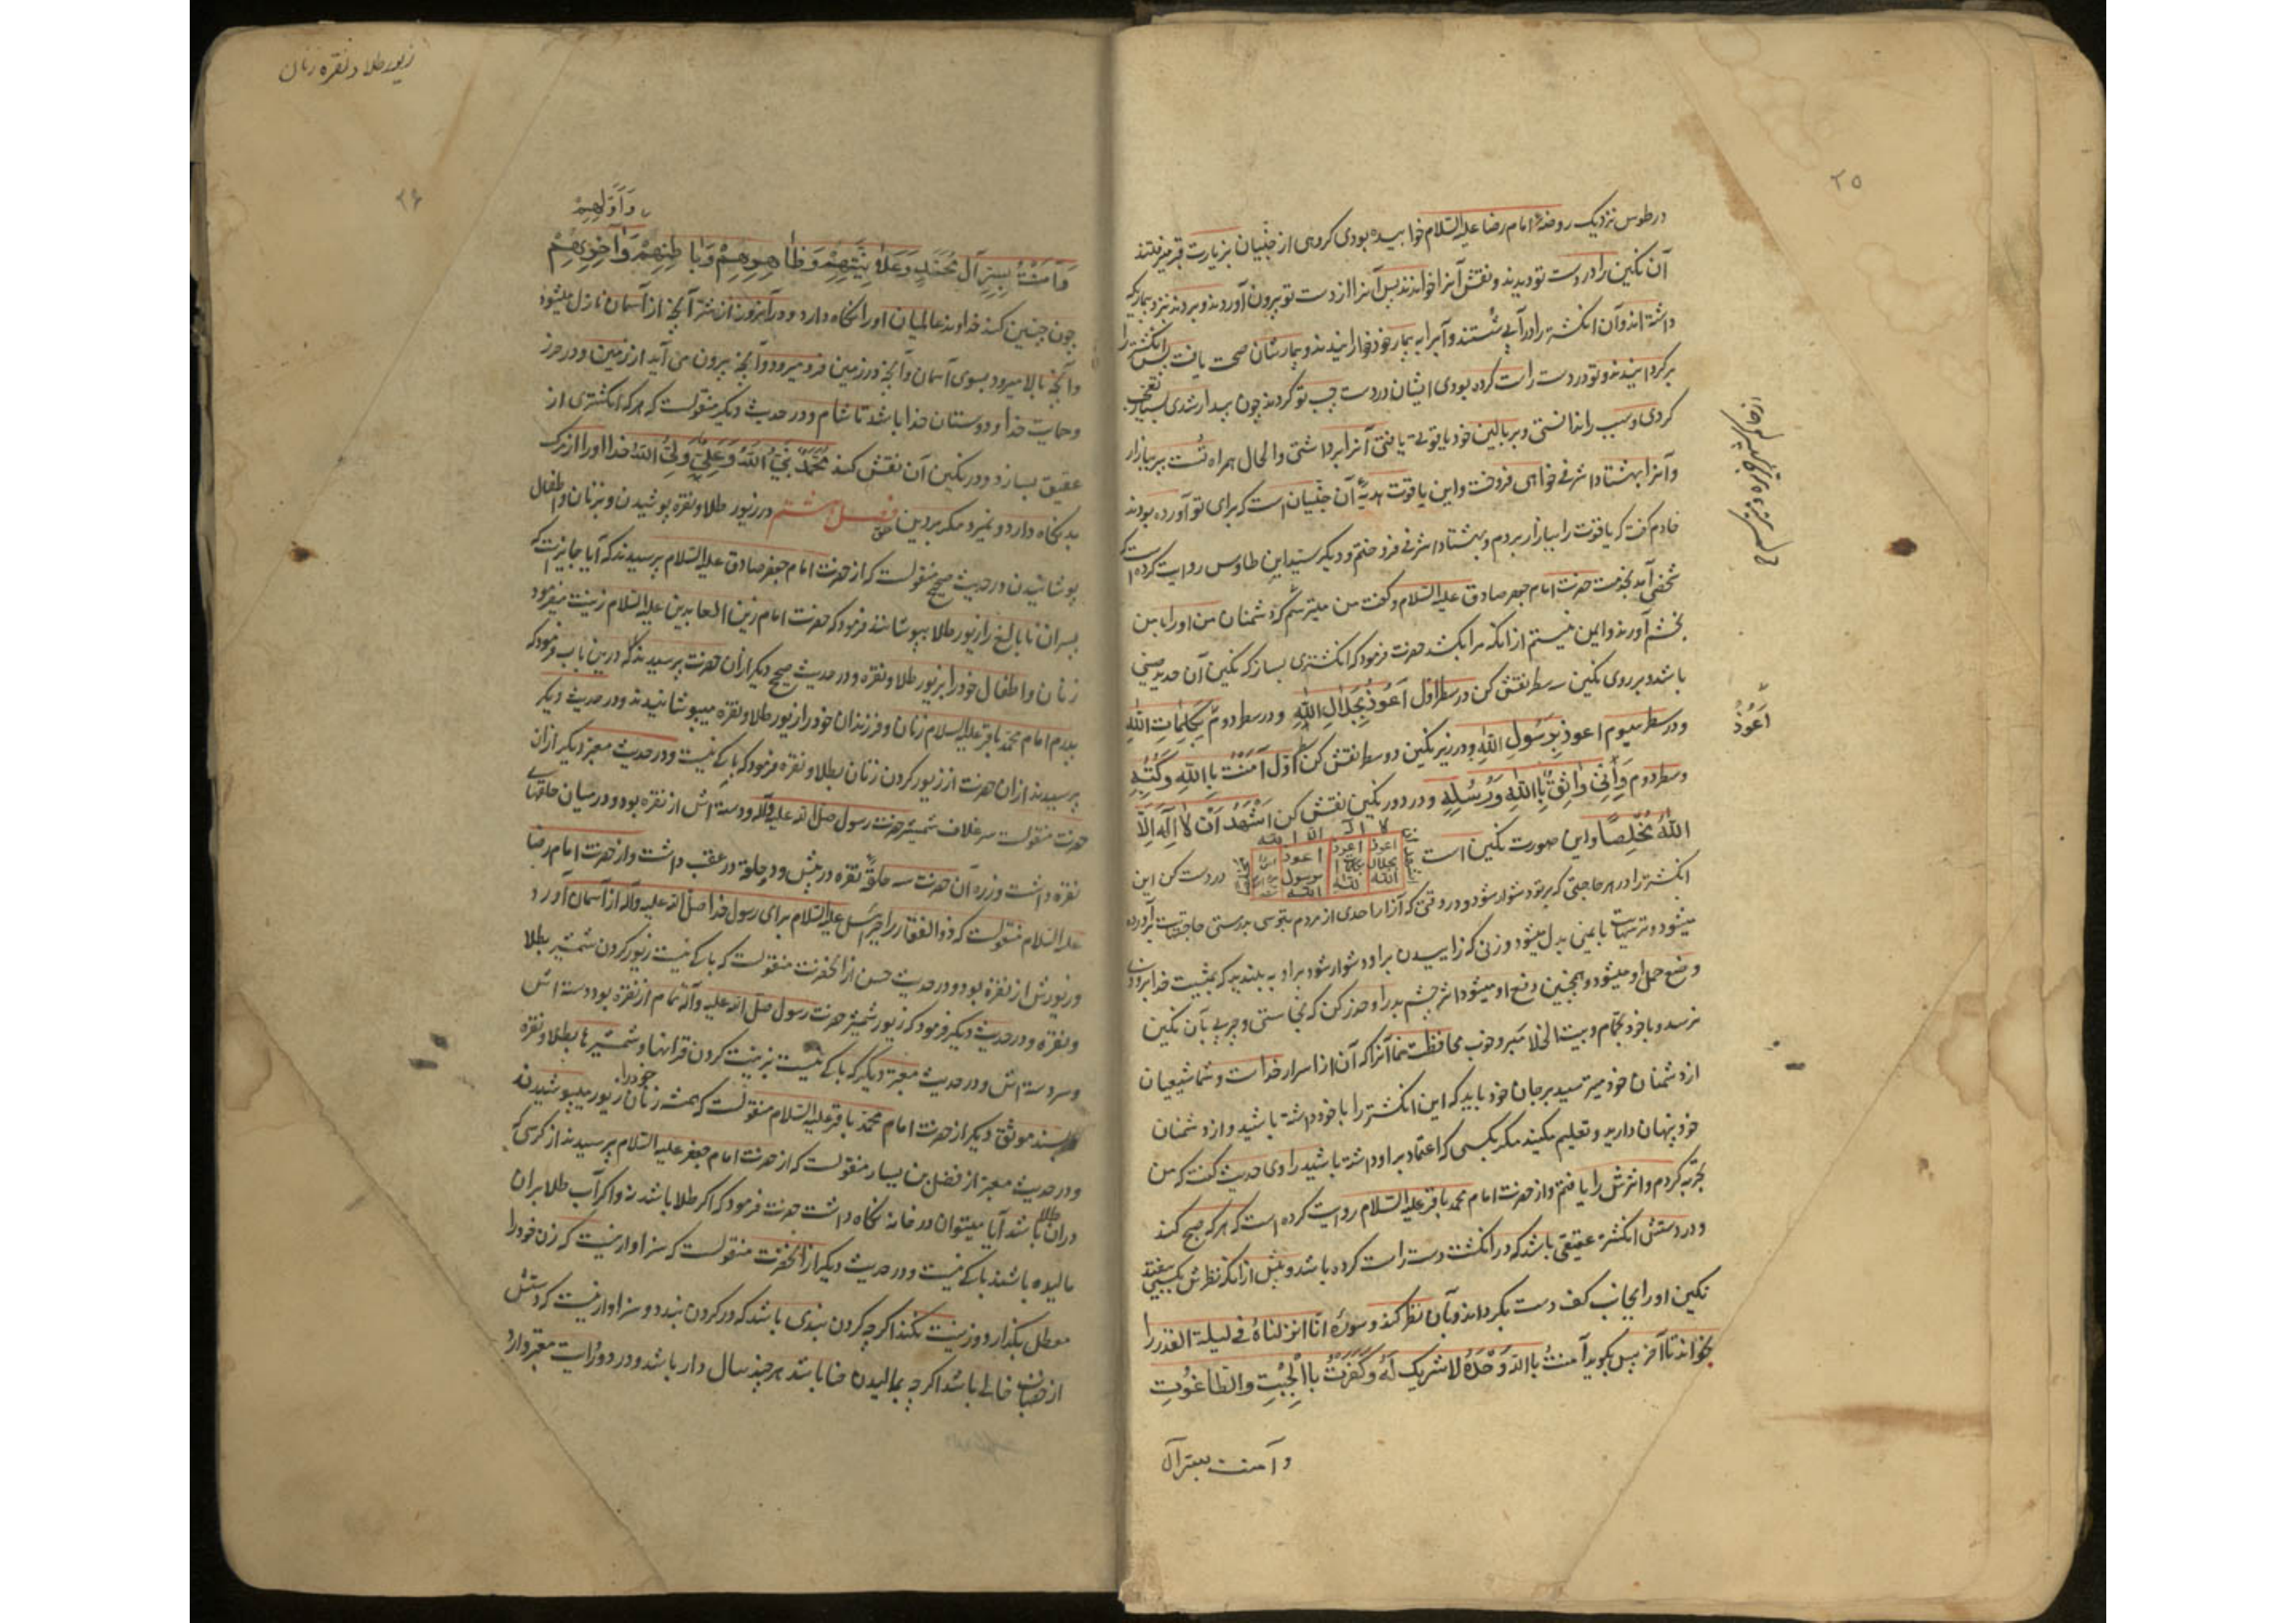 ۲۵
در طوس نزدیک روضهٔ امام رضا علیه السلام خوابیده بودی کروهی از جنّیان بزیارت قبر میرفتند
آن نکین را در دست تو دیدند و نقش آنرا خواندند پس آنرا از دست تو بیرون آوردند و بردند نزد بیماریکه
داشته اند و آن انکشتر را در آبی شستند و آبرا به بیمار خود خورانیدند و بیمارشان صحت یافت پس انکشتر را
برکردانیدند و تو در دست راست کرده بودی ایشان در دست چپ تو کردند چون بیدار شدی بسیار تعجب
کردی و سبب را ندانستی و بر بالین خود یاقوتی یافتی آنرا برداشتی و الحال همراه تست ببر ببازار
و آنرا بهشتاد اشرفی خواهی فروخت و این یاقوت هدیهٔ آن جنّیان است که برای تو آورده بودند
خادم کفت که یاقوت را ببازار بردم و بهشتاد اشرفی فروختم و دیکر سید ابن طاوس روایت کرده است که
شخصی آمد بخدمت حضرت امام جعفر صادق علیه السلام و کفت من میترسم که دشمنان من او را بامن
بخشم آورند و ایمن نیستم از آنکه مرا بکشد حضرت فرمود که انکشتری بساز که نکین آن حدید صینی
باشد و بر روی نکین سه سطر نقش کن در سطر اول اَعُوذُ بِجَلالِ اللهِ و در سطر دوم بِکَلِماتِ اللهِ
اَعُوذُ
و در سطر سیوم اعوذ بِرَسُولِ اللهِ و در زیر نکین دو سطر نقش کن سطر اوّل آمَنْتُ بِاللهِ وَکُتُبِهِ
و سطر دوم وَاِنّی واثِقٌ بِاللهِ وَرُسُلِهِ و در دور نکین نقش کن اَشْهَدُ اَنْ لا اِلٰهَ اِلَّا
اللهُ مُخْلِصًا و این صورت نکین است
اعوذ بجلال الله
اعوذ بکلمات الله
اعوذ برسول الله
در دست کن این
انکشتر را در هر حاجتی که بر تو دشوار شود و در وقتی که آزار احدی از مردم بترسی بدرستی حاجتهایت برآورده
میشود و ترسهایت بایمنی بدل میشود و زنی که زاییدن بر او دشوار شود بر او به بندید که بمشیت خدا بزودی
وضع حمل او میشود و همچنین دفع او میشود اثر چشم بد را و حذر کن که نجاستی و چربی بآن نکین
نرسد و با خود بحمام و بیت الخلا مبر و خوب محافظت نما آنرا که آن از اسرار خداست و شما شیعیان
از دشمنان خود میترسید بر جان خود باید که این انکشتر را با خود داشته باشید و از دشمنان
خود پنهان دارید و تعلیم مکنید مکر بکسی که اعتماد بر او داشته باشید راوی حدیث کفت که من
تجربه کردم و اثرش را یافتم و از حضرت امام محمد باقر علیه السلام روایت کرده است که هر که صبح کند
و در دستش انکشتر عقیقی باشد که در انکشت دست راست کرده باشد و پیش از آنکه نظرش بکسی بیفتد
نکین او را بجانب کف دست بکرداند و بآن نظر کند و سورهٔ انا انزلناهُ فی لیلة القدر را
بخواند تا آخر پس بکوید آمنتُ باالله وَحْدَهُ لا شریک لَهُ وَکَفَرْتُ باالْجِبْتِ والطاغُوتِ
و آمنت بسرّ آل
زیور طلا و نقره زنان
۲۶
وَاَوَّلِهِمْ
وَآمَنْتُ بِسِرِّ آلِ مُحَمَّدٍ وَعَلانِیَتِهِمْ وَظاهِرِهِمْ وَباطِنِهِمْ وَآخِرِهِمْ
چون چنین کند خداوند عالمیان او را نکاه دارد در آنروز از شر آنچه از آسمان نازل میشود
و آنچه بالا میرود بسوی آسمان و آنچه در زمین فرو میرود و آنچه بیرون می آید از زمین و در حرز
و حمایت خدا و دوستان خدا باشد تا شام و در حدیث دیکر منقولست که هر که انکشتری از
عقیق بسازد و در نکین آن نقش کند مُحَمَّدٌ نَبِیُّ اللهِ وَعَلِیٌّ وَلِیُّ اللهِ خدا او را از مرک
بد نکاه دارد و نمیرد مکر بر دین حق فصل هشتم در زیور طلا و نقره پوشیدن و بزنان و اطفال
پوشانیدن در حدیث صحیح منقولست که از حضرت امام جعفر صادق علیه السلام پرسیدند که آیا جایز است که
پسران نابالغ را زیور طلا بپوشانند فرمود که حضرت امام زین العابدین علیه السلام زینت میفرمود
زنان و اطفال خود را بزیور طلا و نقره و در حدیث صحیح دیکر از آن حضرت پرسیدند که درین باب فرمود که
پدرم امام محمد باقر علیه السلام زنان و فرزندان خود را از زیور طلا و نقره میپوشانیدند و در حدیث دیکر
پرسیدند از آن حضرت از زیور کردن زنان بطلا و نقره فرمود که باکی نیست و در حدیث معتبر دیکر از آن
حضرت منقولست سر غلاف شمشیر حضرت رسول صلی الله علیه وآله و دسته اش از نقره بود و در میان حلقهای
نقره داشت و زره آن حضرت سه حلقهٔ نقره در پیش و دو حلقه در عقب داشت و از حضرت امام رضا
علیه السلام منقولست که ذوالفقار را جبرئیل علیه السلام برای رسول خدا صلی الله علیه وآله از آسمان آورد
و زیورش از نقره بود و در حدیث حسن از آنحضرت منقولست که باکی نیست زیور کردن شمشیر بطلا
و نقره و در حدیث دیکر فرمود که زیور شمشیر حضرت رسول صلی الله علیه وآله تمام از نقره بود دسته اش
و سر دسته اش و در حدیث معتبر دیکر که باکی نیست بزینت کردن قرآنها و شمشیرها بطلا و نقره
بسند موثق دیکر از حضرت امام محمد باقر علیه السلام منقولست که همیشه زنان خود را زیور میپوشیدند
و در حدیث معتبر از فضل بن یسار منقولست که از حضرت امام جعفر علیه السلام پرسیدند از کرسی که
در آن طلا باشد آیا میتوان در خانه نکاه داشت حضرت فرمود که اکر طلا باشد نه و اکر آب طلا بر آن
مالیده باشند باکی نیست و در حدیث دیکر از آنحضرت منقولست که سزاوار نیست که زن خود را
معطل بکذارد و زینت نکند اکرچه کردن بندی باشد که در کردن بندد و سزاوار نیست که دستش
از خضاب خالی باشد اکرچه بمالیدن حنا باشد هر چند سال دار باشد و در دو روایت معتبر وارد